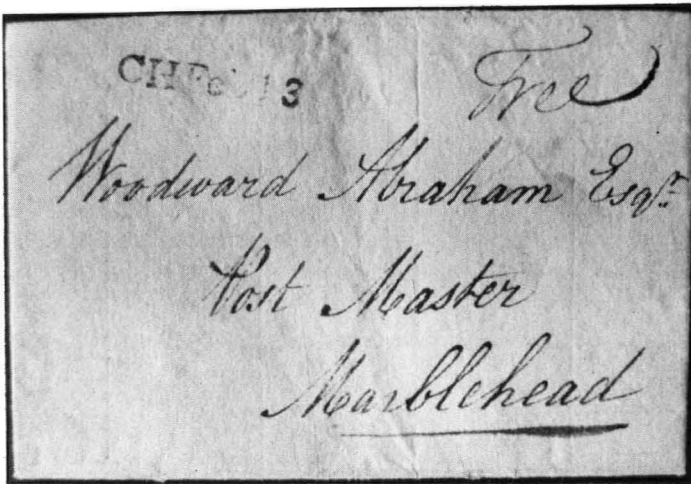 CH Fe 13
Free
Woodward Abraham Esqr.
Post Master
Marblehead